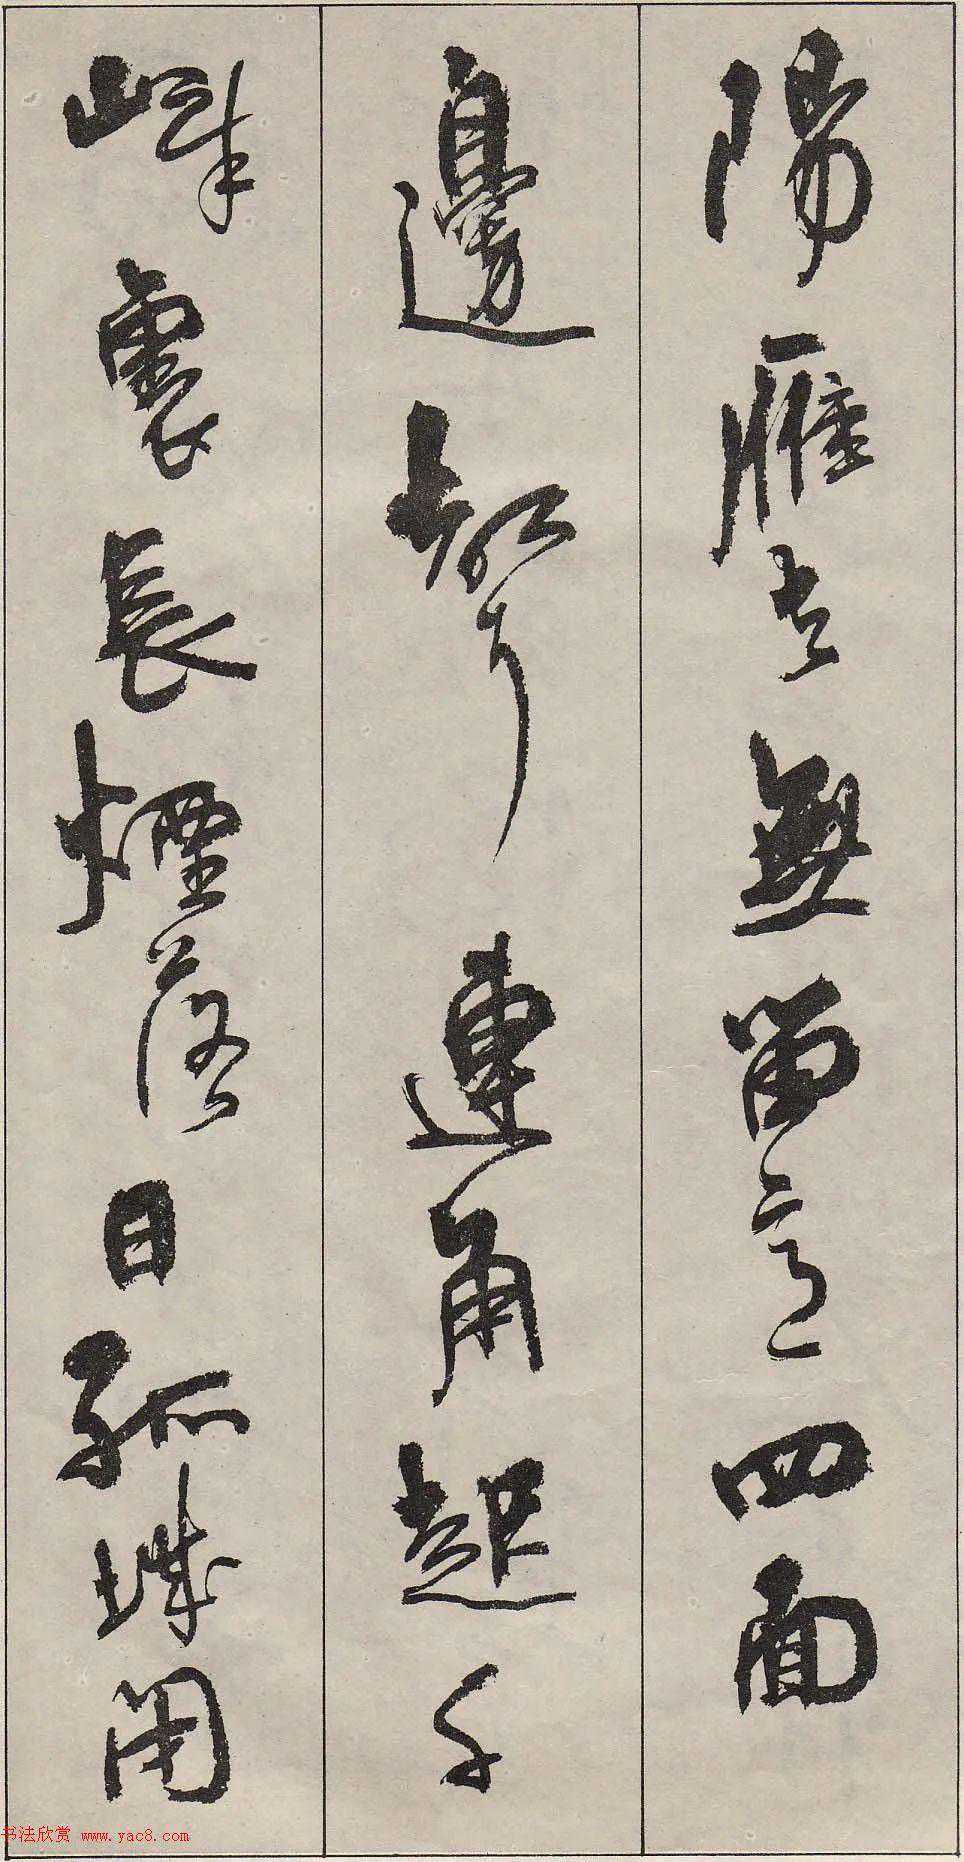 陽雁去無留意四面
邊聲連角起千
嶂裏長煙落日孤城閉
书法欣赏 www.yac8.com